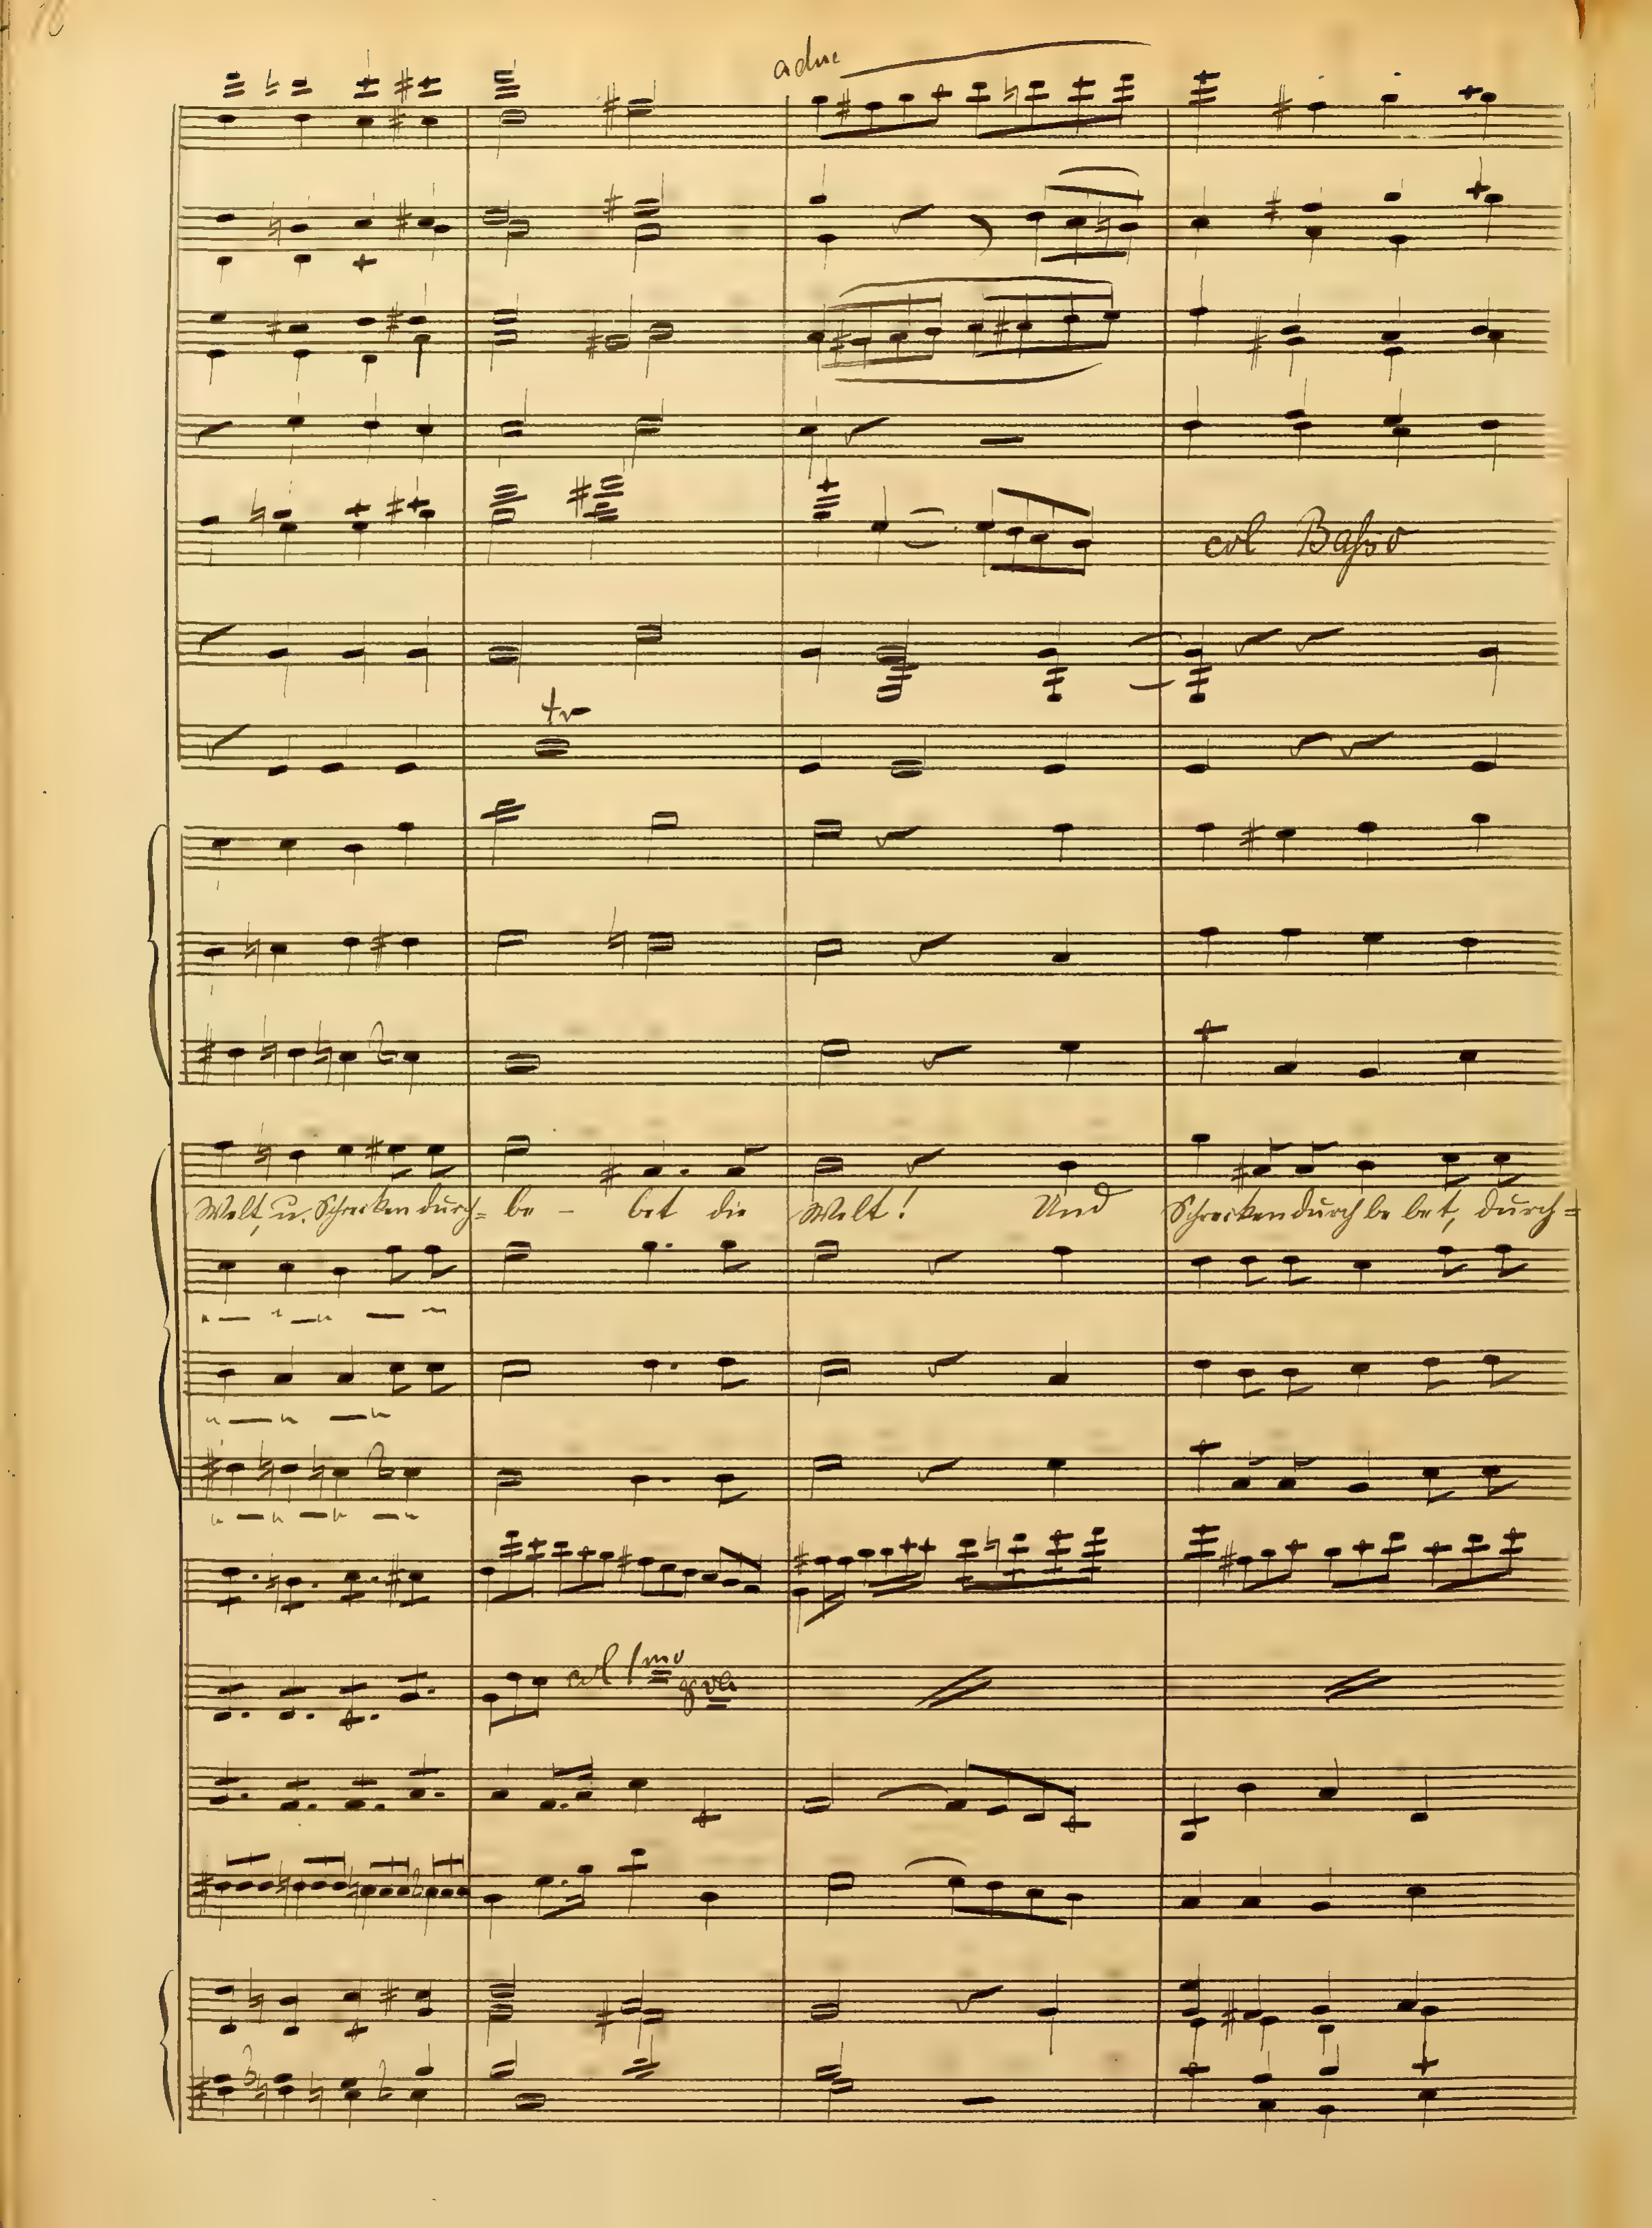 adue
col Baſso
tr
Welt, u. Schrecken durch= be - bet die Welt! Und Schrecken durch be bet, durch=
col 1mo